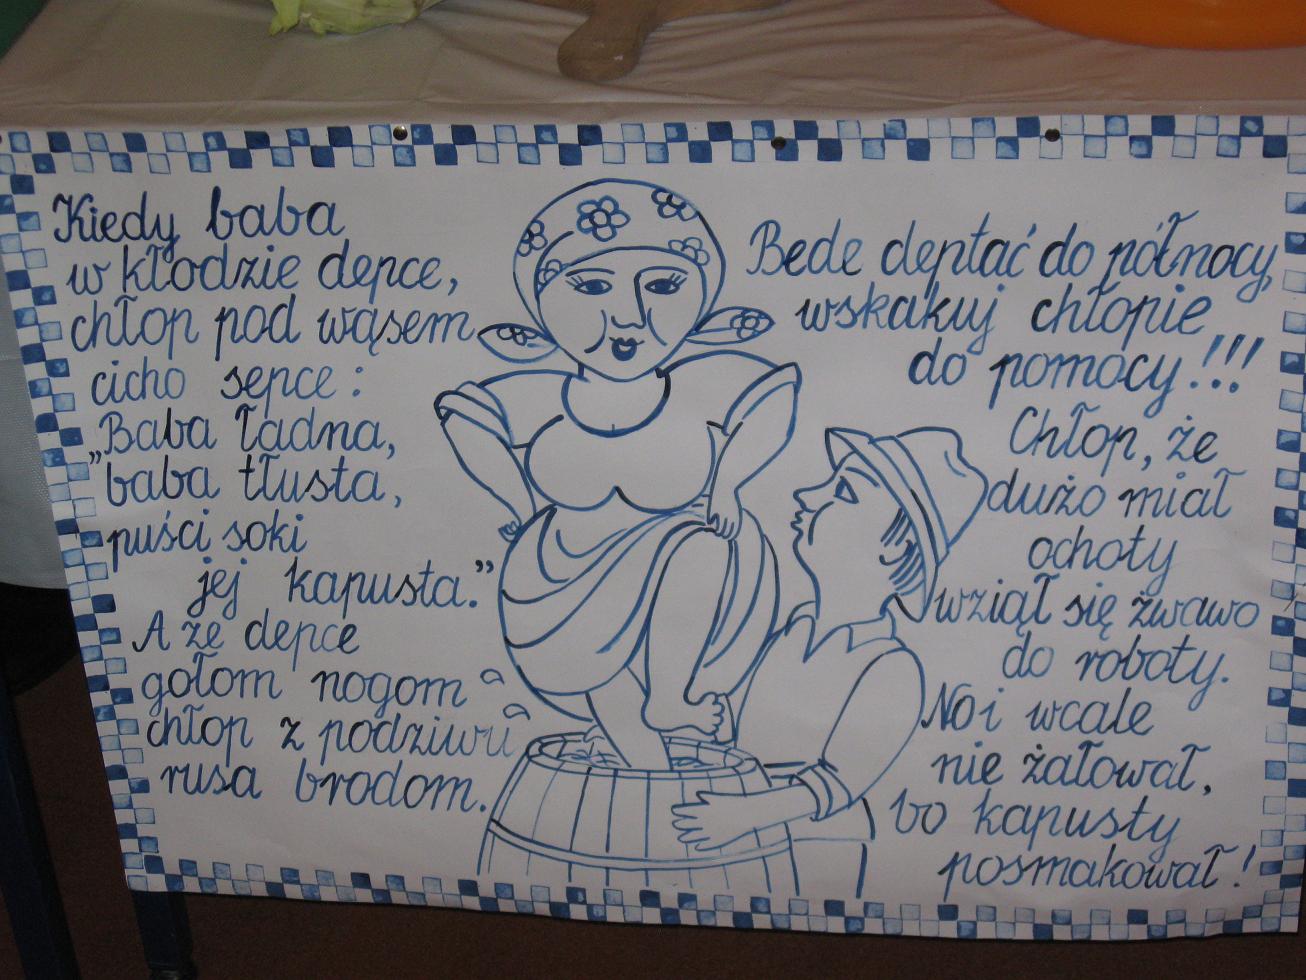 Kiedy baba
w kłodzie depce,
chłop pod wąsem
cicho sepce:
Baba ładna,
"baba tłusta,
puści soki
jej kapusta."
A że depce
gołom nogom
chłop z podziwu
rusa brodom.
Bede deptać do północy,
wskakuj chłopie
do pomocy!!!
Chłop, że
dużo miał
ochoty
wziął się żwawo
do roboty.
No i wcale
nie żałował,
bo kapusty
posmakował!